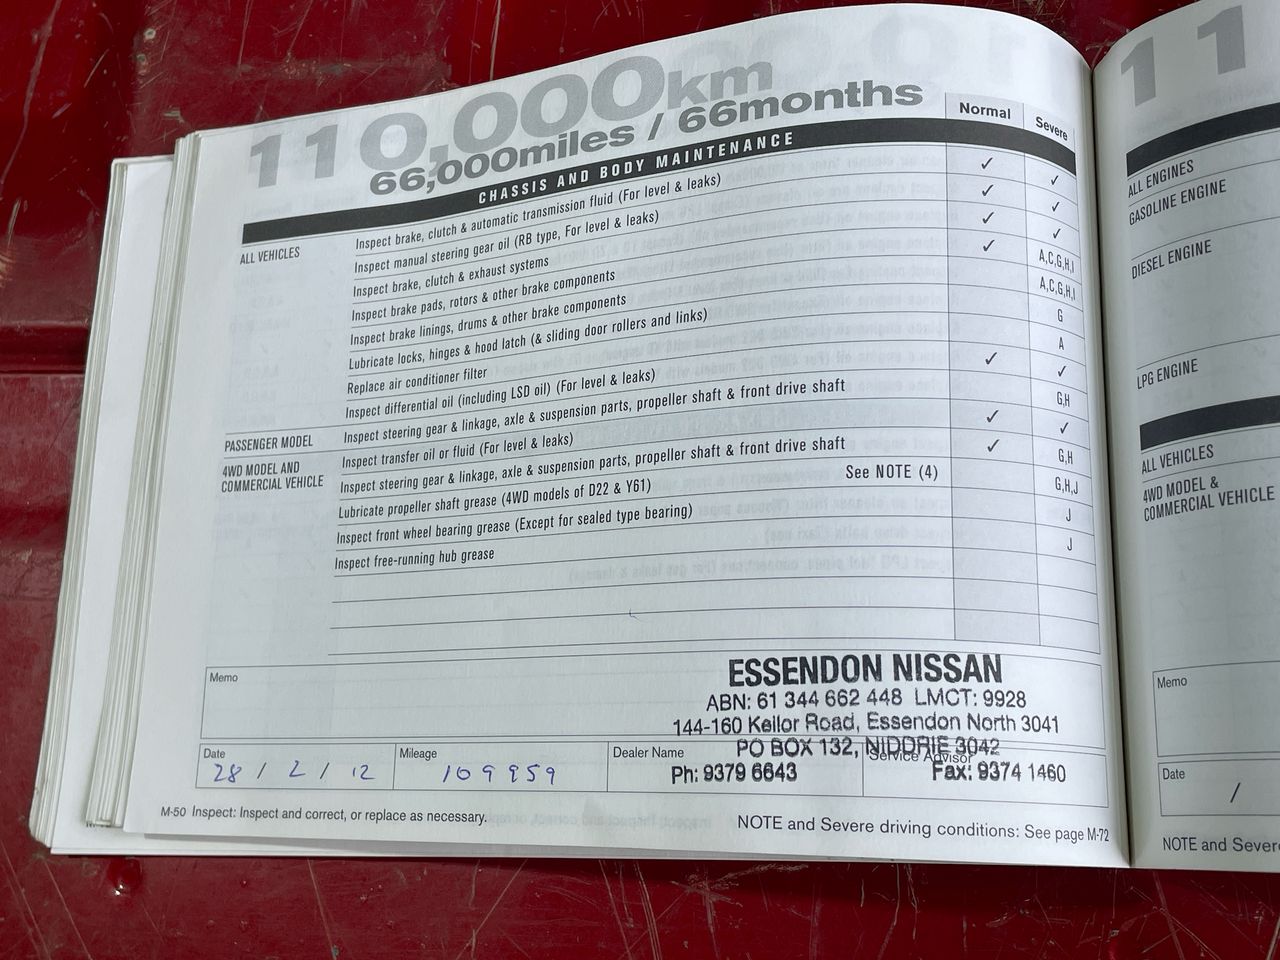 110,000km
66,000miles / 66months
Normal Severe
CHASSIS AND BODY MAINTENANCE
ALL VEHICLES Inspect brake, clutch & automatic transmission fluid (For level & leaks) ✓ ✓
Inspect manual steering gear oil (RB type, For level & leaks) ✓ ✓
Inspect brake, clutch & exhaust systems ✓ ✓
Inspect brake pads, rotors & other brake components ✓ A,C,G,H,I
Inspect brake linings, drums & other brake components A,C,G,H,I
Lubricate locks, hinges & hood latch (& sliding door rollers and links) G
Replace air conditioner filter A
Inspect differential oil (including LSD oil) (For level & leaks) ✓ ✓
PASSENGER MODEL Inspect steering gear & linkage, axle & suspension parts, propeller shaft & front drive shaft G,H
4WD MODEL AND COMMERCIAL VEHICLE Inspect transfer oil or fluid (For level & leaks) ✓ ✓
Inspect steering gear & linkage, axle & suspension parts, propeller shaft & front drive shaft ✓ G,H
Lubricate propeller shaft grease (4WD models of D22 & Y61) See NOTE (4) G,H,J
Inspect front wheel bearing grease (Except for sealed type bearing) J
Inspect free-running hub grease J
Memo
ESSENDON NISSAN
ABN: 61 344 662 448 LMCT: 9928
144-160 Keilor Road, Essendon North 3041
PO BOX 132, NIDDRIE 3042
Ph: 9379 6643 Fax: 9374 1460
Date 28 / 2 / 12
Mileage 109959
Dealer Name
Service Advisor
M-50 Inspect: Inspect and correct, or replace as necessary.
NOTE and Severe driving conditions: See page M-72
11
ALL ENGINES
GASOLINE ENGINE
DIESEL ENGINE
LPG ENGINE
ALL VEHICLES
4WD MODEL &
COMMERCIAL VEHICLE
Memo
Date /
NOTE and Severe